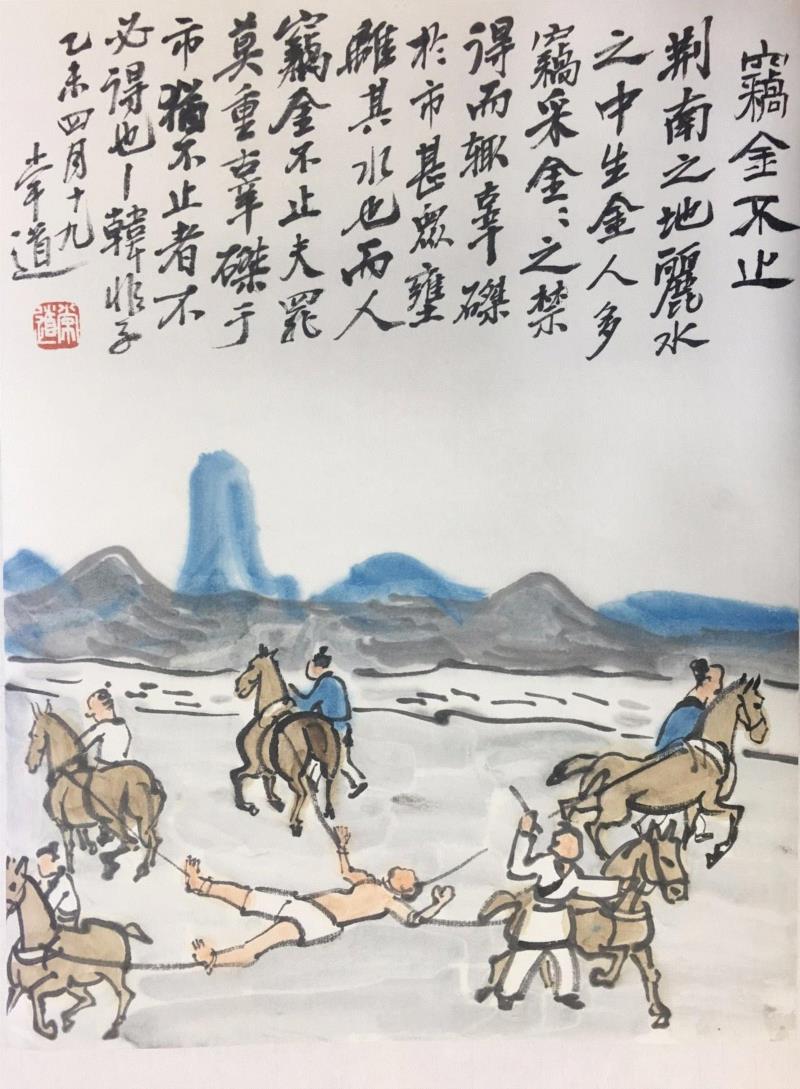 窃金不止
荆南之地麗水
之中生金人多
竊采金〻之禁
得而輒辜磔
於市甚眾壅
離其水也而人
竊金不止夫罪
莫重辜磔于
市猶不止者不
必得也－韓非子
乙未四月十九
崇道
崇道